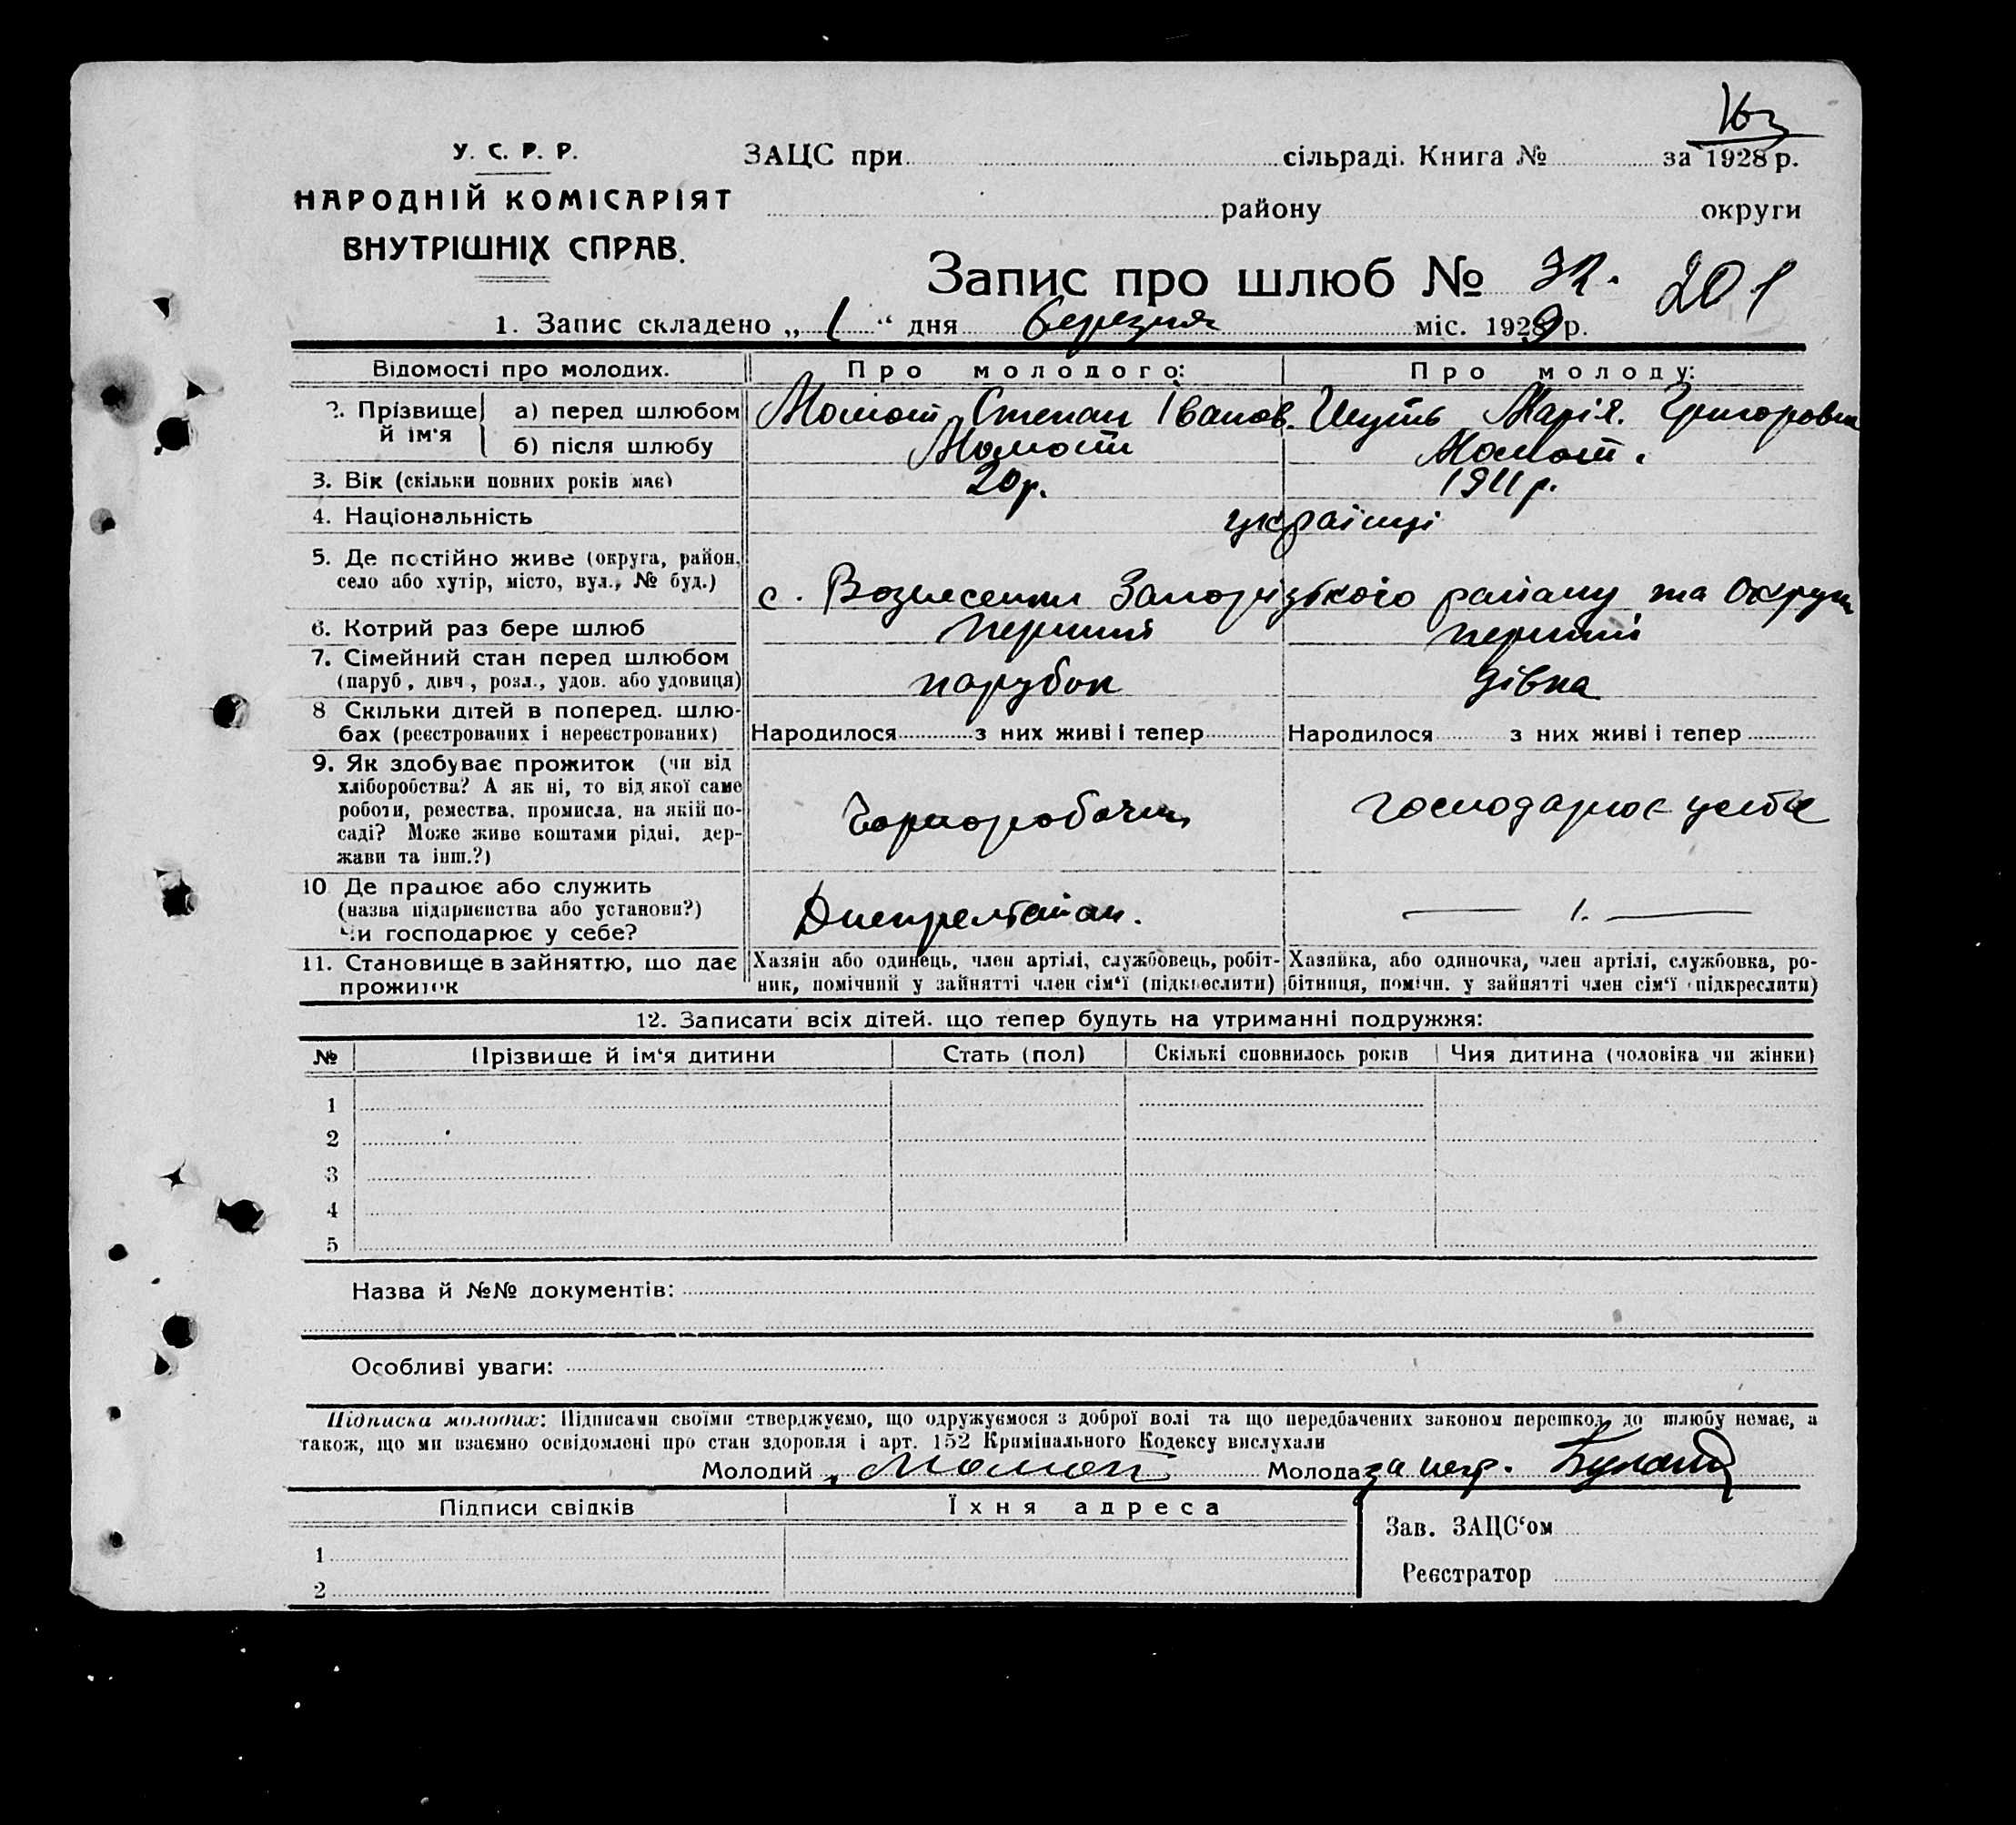 163
У. С. Р. Р.
НАРОДНІЙ КОМІСАРІЯТ
ВНУТРІШНІХ СПРАВ.
ЗАЦС при сільраді. Книга № за 1928 р.
району округи
Запис про шлюб № 32. 201
1. Запис складено „ 1 “ дня березня міс. 1929 р.
Відомості про молодих. Про молодого: Про молоду:
2. Прізвище й ім'я а) перед шлюбом Момот Степан Іванов. Шуть Марія Григоровна
б) після шлюбу Момот Момот.
3. Вік (скільки повних років має) 20 р. 1911 р.
4. Національність українці
5. Де постійно живе (округа, район,
село або хутір, місто, вул., № буд.) с. Вознесенки Запорізького району та Округи
6. Котрий раз бере шлюб перший перший
7. Сімейний стан перед шлюбом
(паруб., дівч., розл., удов. або удовиця) парубок дівка
8 Скільки дітей в поперед. шлю-
бах (реєстрованих і нереєстрованих) Народилося з них живі і тепер Народилося з них живі і тепер
9. Як здобуває прожиток (чи від
хліборобства? А як ні, то від якої саме
роботи, ремества, промисла, на якій по-
саді? Може живе коштами рідні, дер-
жави та інш.?) Чорноробочий господарює у себе
10 Де працює або служить
(назва підприємства або установи?)
Чи господарює у себе? 1.
11. Становище в зайняттю, що дає
прожиток
Хазяін або одинець, член артілі, службовець, робіт-
ник, помічний у зайнятті член сім'ї (підкреслити)
Хазяйка, або одиночка, член артілі, службовка, ро-
бітниця, помічн. у зайнятті член сім'ї підкреслити)
12. Записати всіх дітей. що тепер будуть на утриманні подружжя:
№ Прізвище й ім'я дитини Стать (пол) Скількі сповнилось років Чия дитина (чоловіка чи жінки)
1
2
3
4
5
Назва й №№ документів:
Особливі уваги:
Підписка молодих: Підписами своїми стверджуємо, що одружуємося з доброї волі та що передбачених законом перешкод до шлюбу немає, а
також, що ми взаємно освідомлені про стан здоровля і арт. 152 Кримінального Кодексу вислухали
Молодий Момот Молода за негр.
Підписи свідків Їхня адреса
Зав. ЗАЦС'ом
1
Реєстратор
2